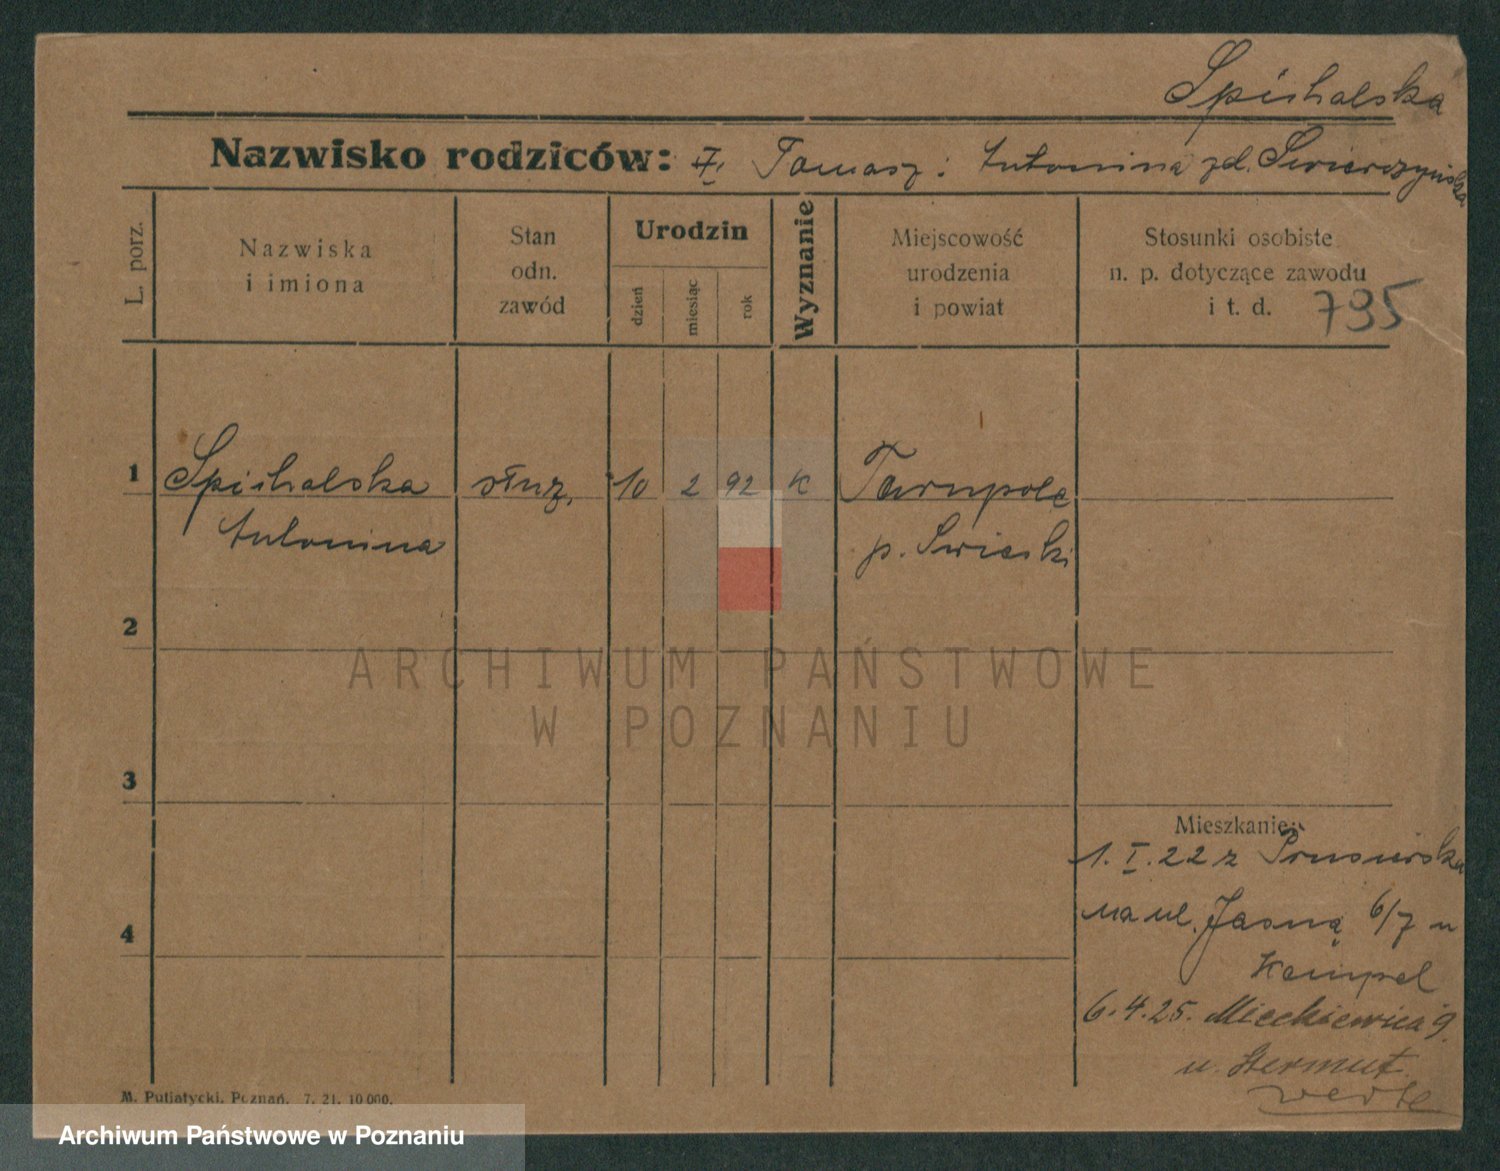 Spichalska
Nazwisko rodziców: Tomasz i Antonina zd. Świerczyńska
L. porz.
Nazwiska
i imiona
Stan
odn.
zawód
Urodzin
dzień
miesiąc
rok
Wyznanie
Miejscowość
urodzenia
i powiat
Stosunki osobiste
n. p. dotyczące zawodu
i t. d. 795
1 Spichalska służ. 10 2 92 K
Antonina p.
2
3
Mieszkanie:
1. I. 22 z
na ul. Jasną 6/7 u
4
6.4.25. Mickiewicza 9.
u.
verte
M. Putiatycki, Poznań. 7. 21. 10 000.
ARCHIWUM PAŃSTWOWE
W POZNANIU
Archiwum Państwowe w Poznaniu